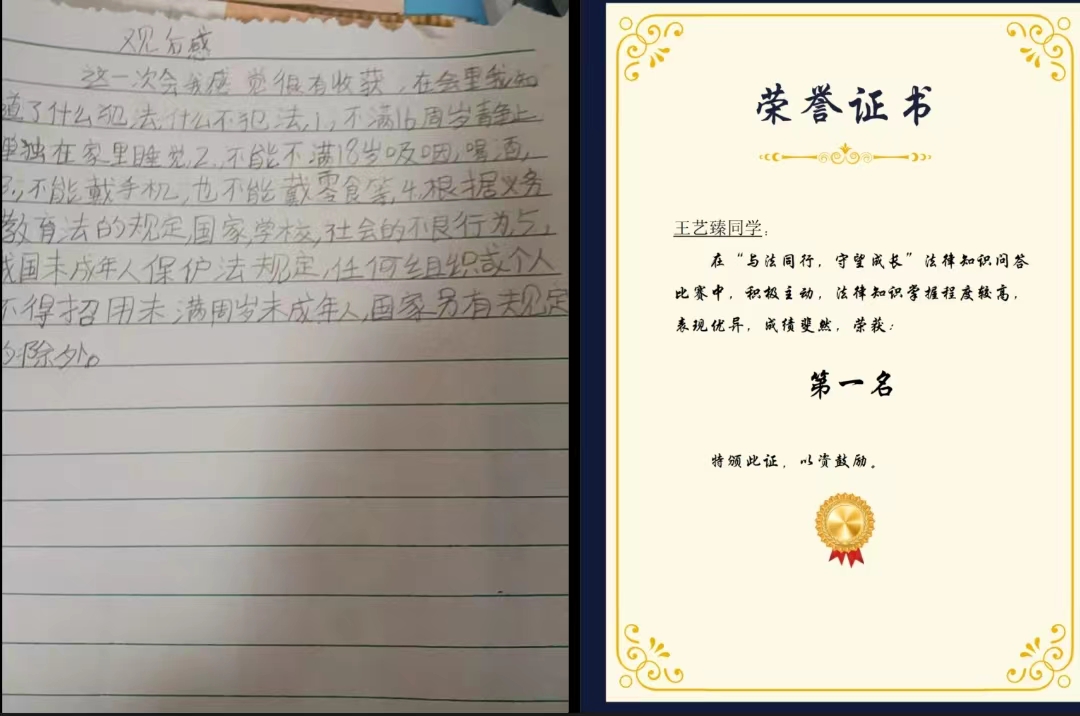 观后感
这一次会我感觉很有收获,在会里我知
道了什么犯法,什么不犯法,1,不满16周岁静止
单独在家里睡觉2.不能不满18岁吸咽,喝酒,
3,不能戴手机,也不能戴零食等,4.根据义务
教育法的规定,国家,学校,社会的不良行为5,
我国未成年人保护法规定,任何组织或个人
不得招用未满周岁未成年人,国家另有规定
的除外。
荣誉证书
王艺臻同学:
在“与法同行,守望成长”法律知识问答
比赛中,积极主动,法律知识掌握程度较高,
表现优异,成绩斐然,荣获:
第一名
特颁此证,以资鼓励。